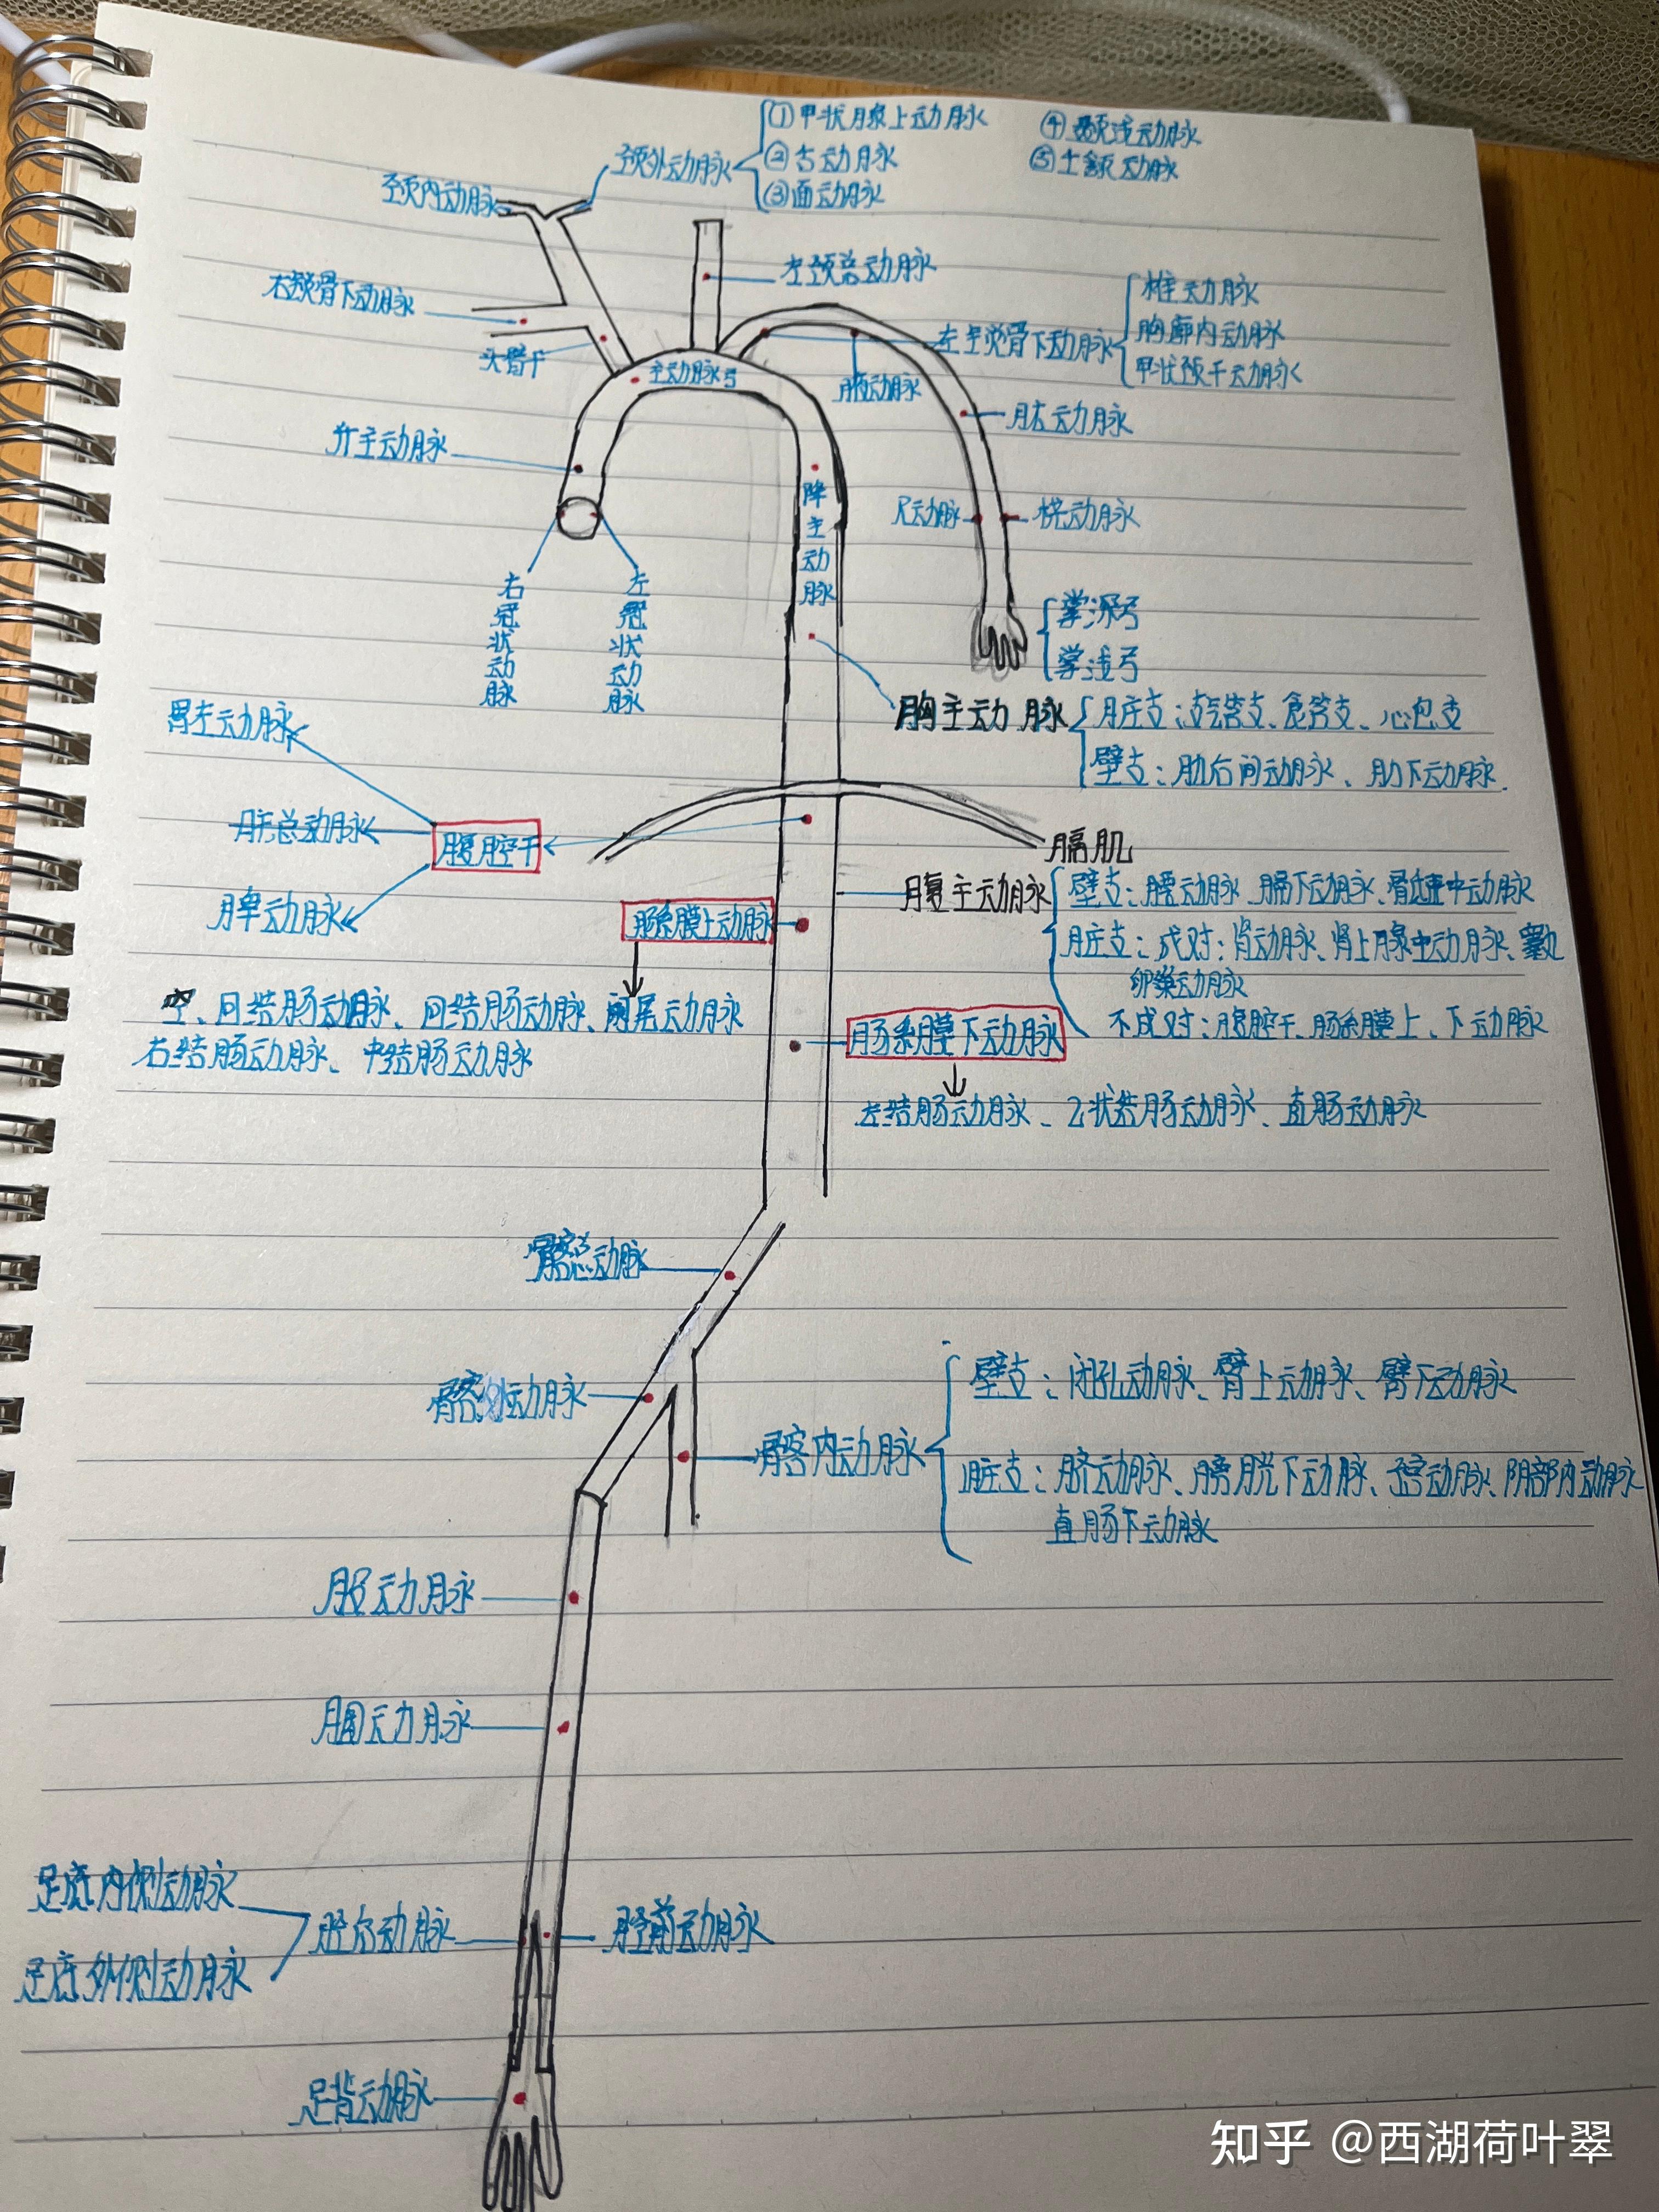 ①甲状腺上动脉
④颞浅动脉
颈外动脉
②舌动脉
⑤上颌动脉
颈内动脉
③面动脉
左颈总动脉
右锁骨下动脉
椎动脉
左锁骨下动脉
胸廓内动脉
头臂干
主动脉弓
腋动脉
甲状颈干动脉
肱动脉
升主动脉
降主动脉
尺动脉
桡动脉
右冠状动脉
左冠状动脉
掌深弓
掌浅弓
胃左动脉
胸主动脉
脏支：支气管支、食管支、心包支
壁支：肋后间动脉、肋下动脉.
肝总动脉
腹腔干
膈肌
脾动脉
肠系膜上动脉
腹主动脉
壁支：腰动脉、膈下动脉、骶中动脉
脏支：成对：肾动脉、肾上腺中动脉、睾丸
卵巢动脉
空、回结肠动脉、回结肠动脉、阑尾动脉
肠系膜下动脉
不成对：腹腔干、肠系膜上、下动脉
右结肠动脉、中结肠动脉
左结肠动脉、乙状结肠动脉、直肠动脉
髂总动脉
髂外动脉
壁支：闭孔动脉、臀上动脉、臀下动脉
髂内动脉
脏支：脐动脉、膀胱下动脉、子宫动脉、阴部内动脉
直肠下动脉
股动脉
腘动脉
足底内侧动脉
胫后动脉
胫前动脉
足底外侧动脉
足背动脉
知乎 @西湖荷叶翠